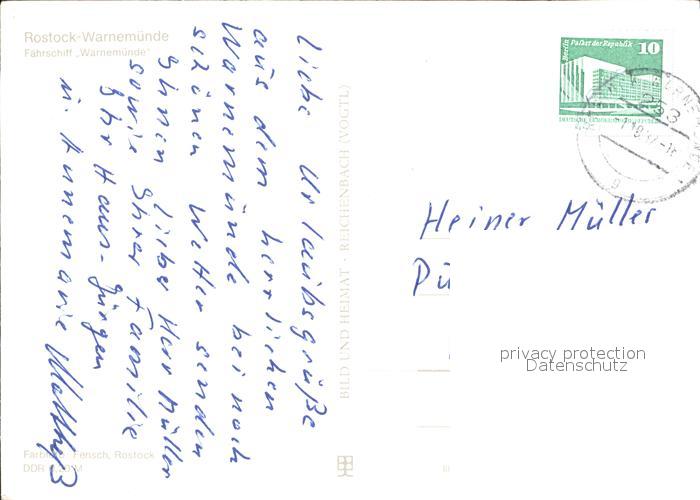 Rostock-Warnemünde
Fährschiff „Warnemünde“
Liebe Urlaubsgrüße
aus dem herrlichen
Warnemünde bei noch
schönen Wetter senden
Ihnen lieber Herr Müller
sowie Ihrer Familie
Ihr Hans-Jürgen
u. Annemarie
Farbfoto: Fensch, Rostock
DDR
BILD UND HEIMAT · REICHENBACH (VOGTL)
Berlin Palast der Republik
10
DEUTSCHE DEMOKRATISCHE REPUBLIK
253
Heiner Müller
Pü
privacy protection
Datenschutz